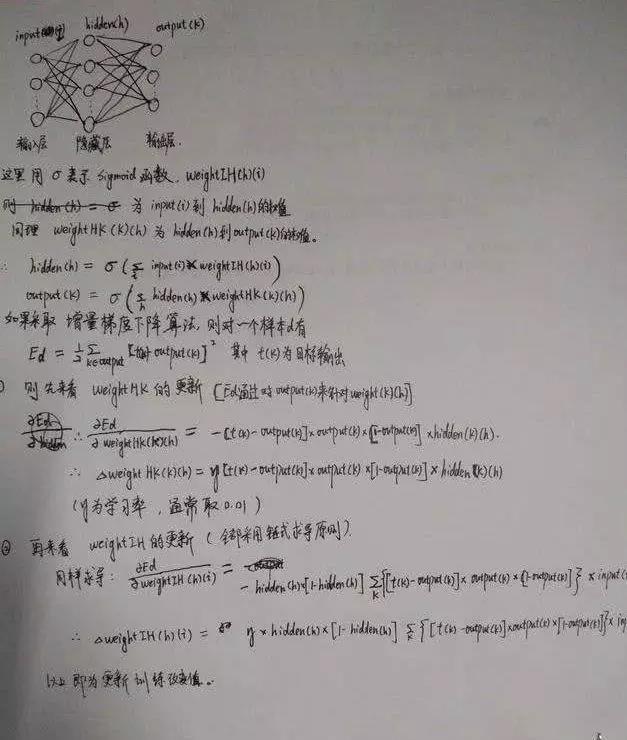 input(i) hidden(h) output(k)
输入层 隐藏层 输出层.
这里用 σ 表示 sigmoid 函数. weightIH(h)(i)
则 hidden(h) = σ 为 input(i) 到 hidden(h) 的权值
同理 weightHK(k)(h) 为 hidden(h) 到 output(k) 的权值。
∴ hidden(h) = σ(∑i input(i)*weightIH(h)(i))
output(k) = σ(∑h hidden(h)*weightHK(k)(h))
如果采取 增量梯度下降算法, 则对一个样本d有
Ed = 1/2 ∑k∈output [t(k)-output(k)]² 其中 t(k)为目标输出
① 则先来看 weightHK 的更新 [Ed通过对output(k)来针对weight(k)(h)]
∴ ∂Ed/∂weightHK(k)(h) = -[t(k)-output(k)]×output(k)×[1-output(k)]×hidden(k)(h).
∴ △weightHK(k)(h) = η[t(k)-output(k)]×output(k)×[1-output(k)]×hidden(k)(h)
(η为学习率, 通常取0.01)
② 再来看 weightIH 的更新 (全部采用链式求导原则).
同样求导: ∂Ed/∂weightIH(h)(i) = - hidden(h)×[1-hidden(h)] ∑k{[t(k)-output(k)]×output(k)×[1-output(k)]}×input(i
∴ △weightIH(h)(i) = η×hidden(h)×[1-hidden(h)] ∑k{[t(k)-output(k)]×output(k)×[1-output(k)]}×inp
以上即为更新训练改变值。